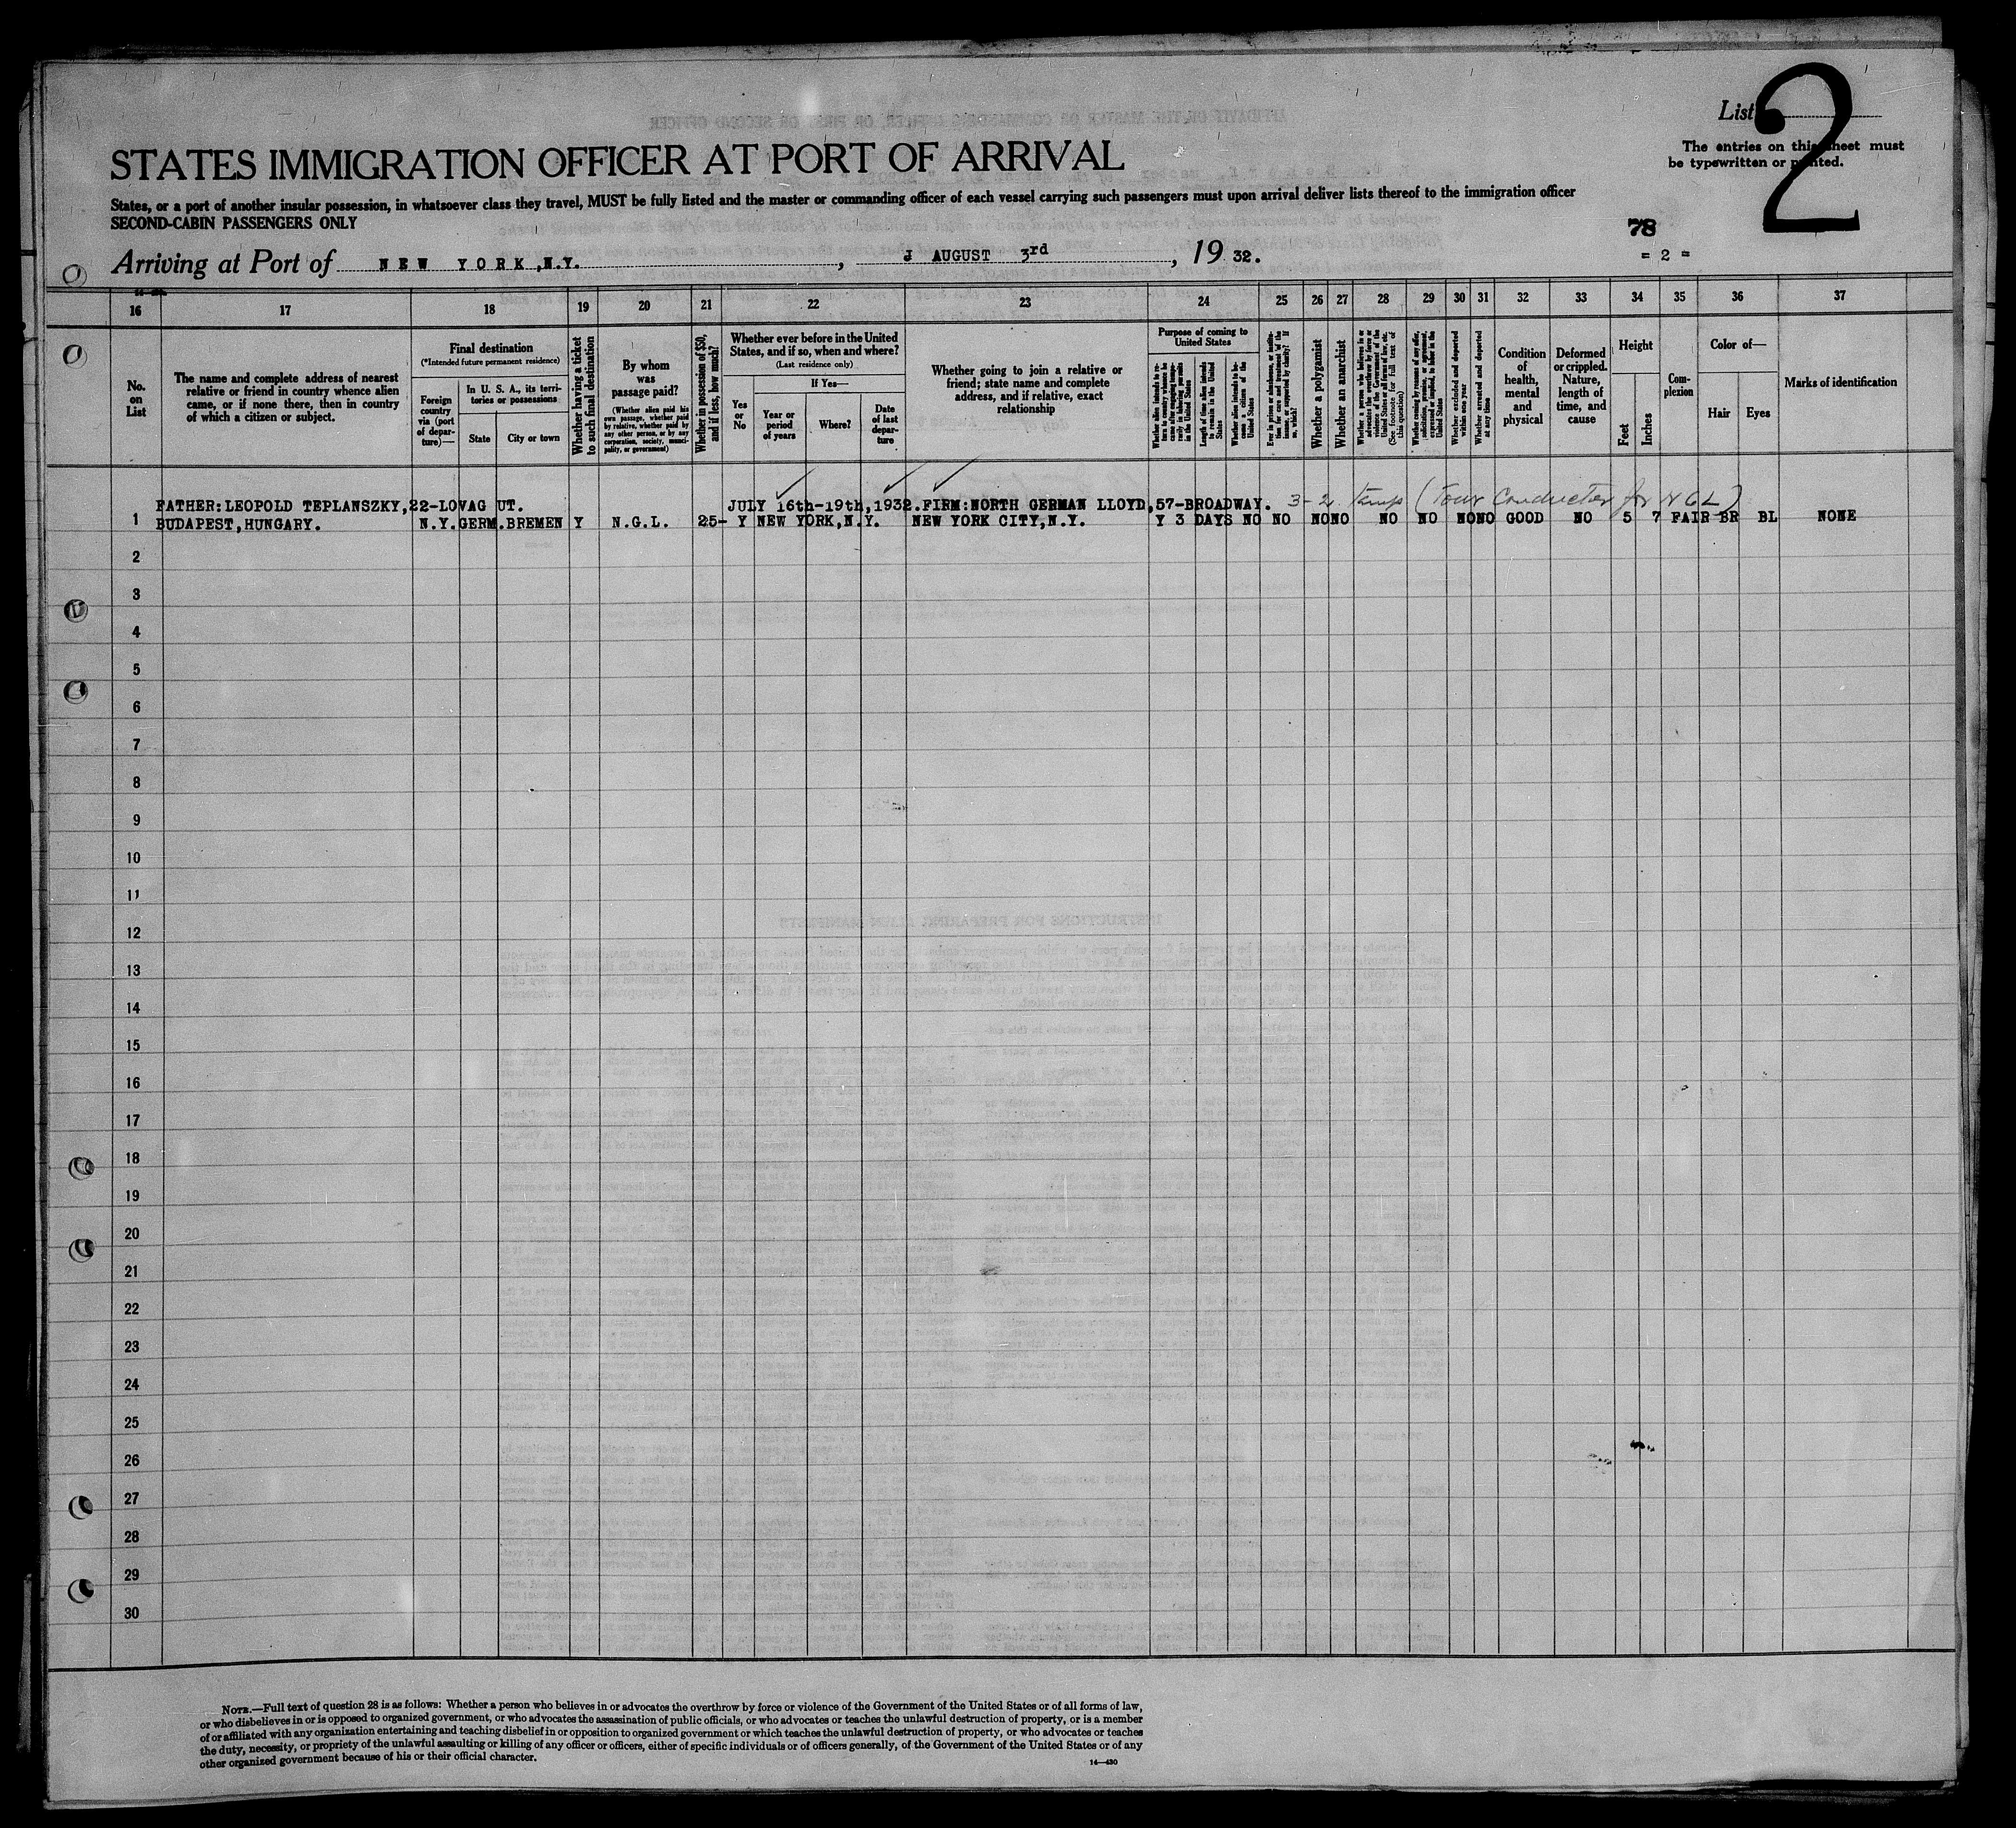 List 2
The entries on this sheet must
be typewritten or printed.
STATES IMMIGRATION OFFICER AT PORT OF ARRIVAL
States, or a port of another insular possession, in whatsoever class they travel, MUST be fully listed and the master or commanding officer of each vessel carrying such passengers must upon arrival deliver lists thereof to the immigration officer
SECOND-CABIN PASSENGERS ONLY
78
Arriving at Port of NEW YORK,N.Y. , J AUGUST 3rd , 19 32.
= 2 =
16 17 18 19 20 21 22 23 24 25 26 27 28 29 30 31 32 33 34 35 36 37
No.
on
List
The name and complete address of nearest
relative or friend in country whence alien
came, or if none there, then in country
of which a citizen or subject.
Final destination
(*Intended future permanent residence)
Foreign
country
via (port
of depar-
ture)—
In U. S. A., its terri-
tories or possessions
State
City or town
Whether having a ticket
to such final destination
By whom
was
passage paid?
(Whether alien paid his
own passage, whether paid
by relative, whether paid by
any other person, or by any
corporation, society, munici-
pality, or government)
Whether in possession of $50,
and if less, how much?
Whether ever before in the United
States, and if so, when and where?
(Last residence only)
Yes
or
No
If Yes—
Year or
period
of years
Where?
Date
of last
depar-
ture
Whether going to join a relative or
friend; state name and complete
address, and if relative, exact
relationship
Purpose of coming to
United States
Whether alien intends to re-
turn to country whence he
came after engaging tempo-
rarily in laboring pursuits
in the United States
Length of time alien intends
to remain in the United
States
Whether alien intends to be-
come a citizen of the
United States
Ever in prison or almshouse, or institu-
tion for care and treatment of the
insane, or supported by charity? If
so, which?
Whether a polygamist
Whether an anarchist
Whether a person who believes in or
advocates the overthrow by force or
violence of the Government of the
United States or all forms of law, etc.
(See footnote for full text of
this question)
Whether coming by reason of any offer,
solicitation, promise, or agreement,
expressed or implied, to labor in the
United States
Whether excluded and deported
within one year
Whether arrested and deported
at any time
Condition
of
health,
mental
and
physical
Deformed
or crippled.
Nature,
length of
time, and
cause
Height
Feet
Inches
Com-
plexion
Color of—
Hair
Eyes
Marks of identification
FATHER:LEOPOLD TEPLANSZKY,22-LOVAG UT. JULY 16th-19th,1932.FIRM:NORTH GERMAN LLOYD,57-BROADWAY. 3-2 temp (Tour Conductor for NGL)
1 BUDAPEST,HUNGARY. N.Y.GERM.BREMEN Y N.G.L. 25- Y NEW YORK,N.Y. NEW YORK CITY,N.Y. Y 3 DAYS NO NO NO NO NO NO NO NO GOOD NO 5 7 FAIR BR BL NONE
2
3
4
5
6
7
8
9
10
11
12
13
14
15
16
17
18
19
20
21
22
23
24
25
26
27
28
29
30
NOTE.—Full text of question 28 is as follows: Whether a person who believes in or advocates the overthrow by force or violence of the Government of the United States or of all forms of law,
or who disbelieves in or is opposed to organized government, or who advocates the assassination of public officials, or who advocates or teaches the unlawful destruction of property, or is a member
of or affiliated with any organization entertaining and teaching disbelief in or opposition to organized government or which teaches the unlawful destruction of property, or who advocates or teaches
the duty, necessity, or propriety of the unlawful assaulting or killing of any officer or officers, either of specific individuals or of officers generally, of the Government of the United States or of any
other organized government because of his or their official character.
14—430